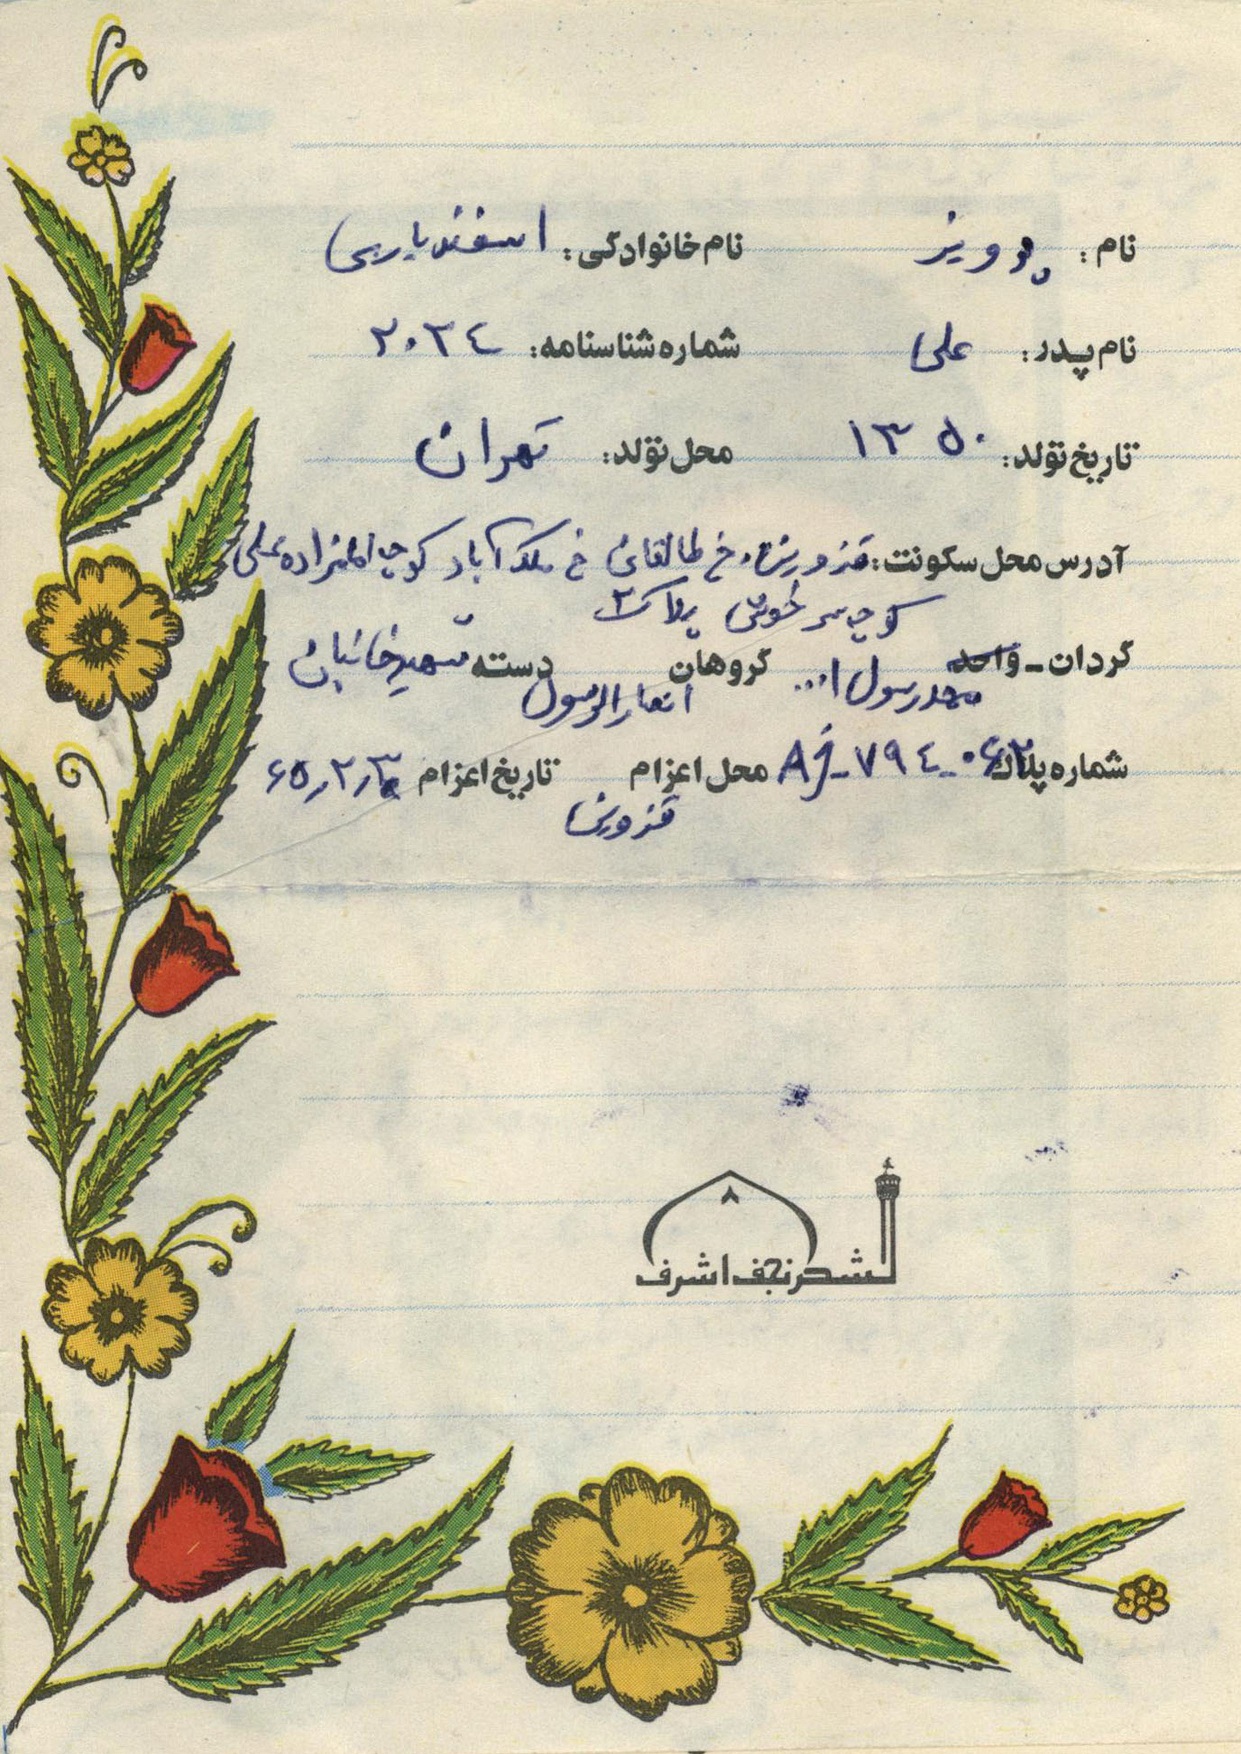 نام: پرویز نام خانوادگی: اسفندیاری
نام پدر: علی شماره شناسنامه: ۲۰۳٤
تاریخ تولد: ۱۳۵۰ محل تولد: تهران
آدرس محل سکونت: قزوین، خ طالقانی خ ملک آباد کوچه امامزاده علی
کوچه سرخوش پلاک ۲
گردان - واحد گروهان دسته شهید خانبان
محمد رسول ا... انصار الرسول
شماره پلاک AJ-۷۹٤-۰٦۲ محل اعزام تاریخ اعزام
قزوین
۸
لشکر نجف اشرف